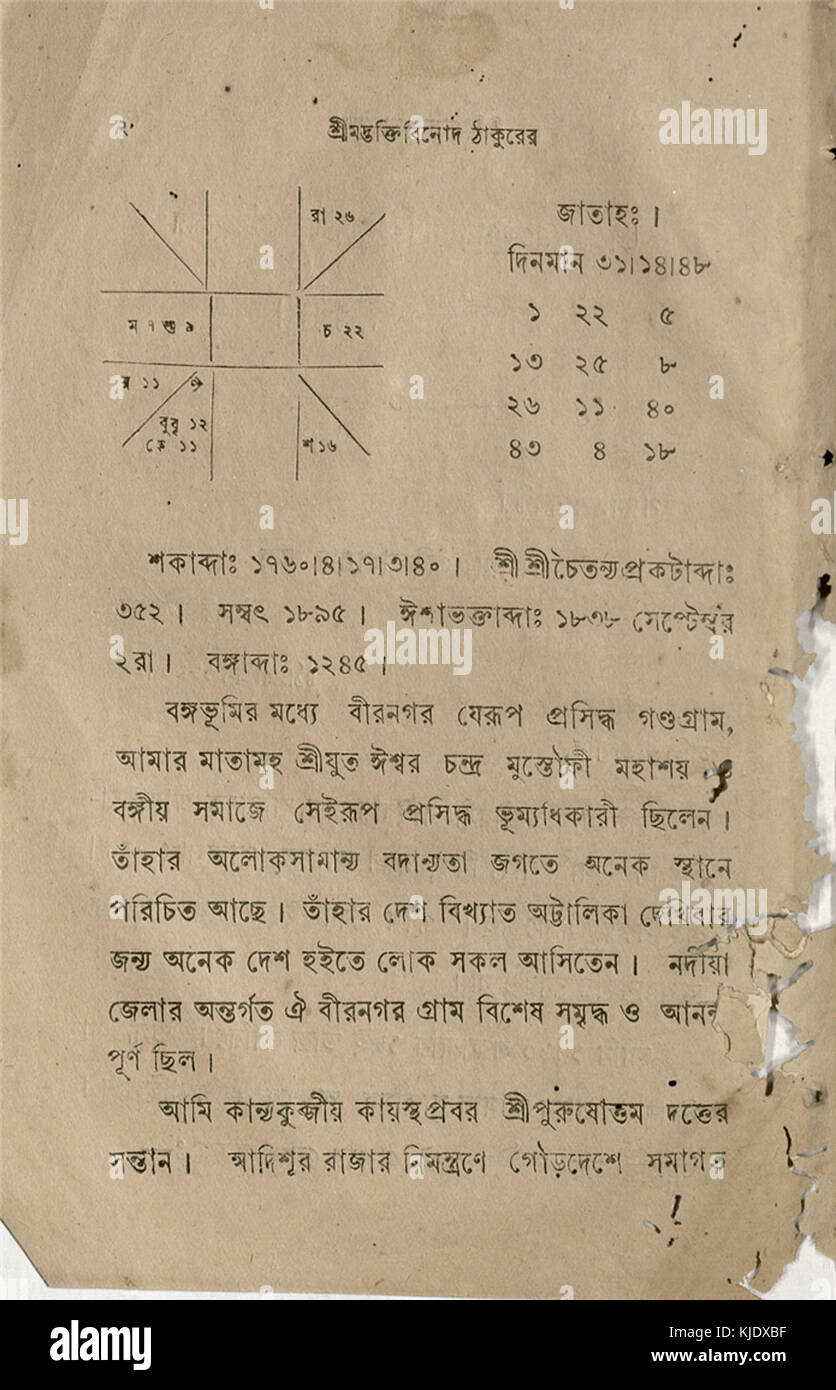 ২
শ্রীমদ্ভক্তিবিনোদ ঠাকুরের
রা ২৬
ম ৭ শু ৯
চ ২২
র ১১
বু বৃ ১২
কে ১১
শ ১৬
জাতাহঃ ।
দিনমান ৩১।১৪।৪৮
১ ২২ ৫
১৩ ২৫ ৮
২৬ ১১ ৪০
৪৩ ৪ ১৮
শকাব্দাঃ ১৭৬০।৪।১৭।৩।৪০ । শ্রীশ্রীচৈতন্যপ্রকটাব্দাঃ
৩৫২ । সম্বৎ ১৮৯৫ । ঈশাভক্তাব্দাঃ ১৮৩৮ সেপ্টেম্বর
২রা । বঙ্গাব্দাঃ ১২৪৫ ।
বঙ্গভূমির মধ্যে বীরনগর যেরূপ প্রসিদ্ধ গণ্ডগ্রাম,
আমার মাতামহ শ্রীযুত ঈশ্বর চন্দ্র মুস্তৌফী মহাশয়
বঙ্গীয় সমাজে সেইরূপ প্রসিদ্ধ ভূম্যধিকারী ছিলেন ।
তাঁহার অলোকসামান্য বদান্যতা জগতে অনেক স্থানে
পরিচিত আছে । তাঁহার দেশ বিখ্যাত অট্টালিকা দেখিবার
জন্য অনেক দেশ হইতে লোক সকল আসিতেন । নদীয়া
জেলার অন্তর্গত ঐ বীরনগর গ্রাম বিশেষ সমৃদ্ধ ও আনন্দ
পূর্ণ ছিল ।
আমি কান্যকুব্জীয় কায়স্থপ্রবর শ্রীপুরুষোত্তম দত্তের
সন্তান । আদিশূর রাজার নিমন্ত্রণে গৌড়দেশে সমাগত
alamy
Image ID: KJDXBF
www.alamy.com